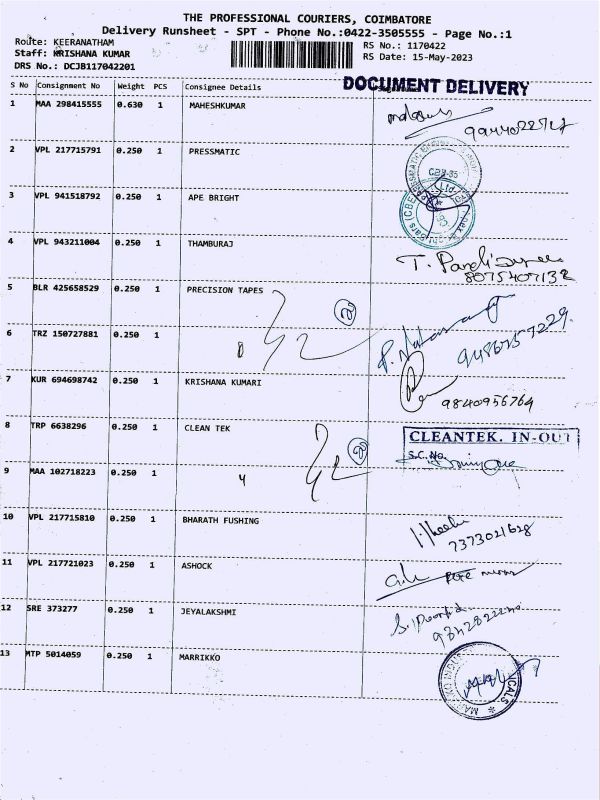 THE PROFESSIONAL COURIERS, COIMBATORE
Delivery Runsheet - SPT - Phone No.:0422-3505555 - Page No.:1
Route: KEERANATHAM
RS No.: 1170422
Staff: KRISHANA KUMAR
RS Date: 15-May-2023
DRS No.: DCJB117042201
DOCUMENT DELIVERY
S No Consignment No Weight PCS Consignee Details
1 MAA 298415555 0.630 1 MAHESHKUMAR
2 VPL 217715791 0.250 1 PRESSMATIC
3 VPL 941518792 0.250 1 APE BRIGHT
4 VPL 943211004 0.250 1 THAMBURAJ
8075407132
5 BLR 425658529 0.250 1 PRECISION TAPES
6 TRZ 150727881 0.250 1
7 KUR 694698742 0.250 1 KRISHANA KUMARI
9840956764
8 TRP 6638296 0.250 1 CLEAN TEK
CLEANTEK. IN-OUT
S.C. No.
9 MAA 102718223 0.250 1
4
10 VPL 217715810 0.250 1 BHARATH FUSHING
7373021628
11 VPL 217721023 0.250 1 ASHOCK
12 SRE 373277 0.250 1 JEYALAKSHMI
13 MTP 5014059 0.250 1 MARRIKKO